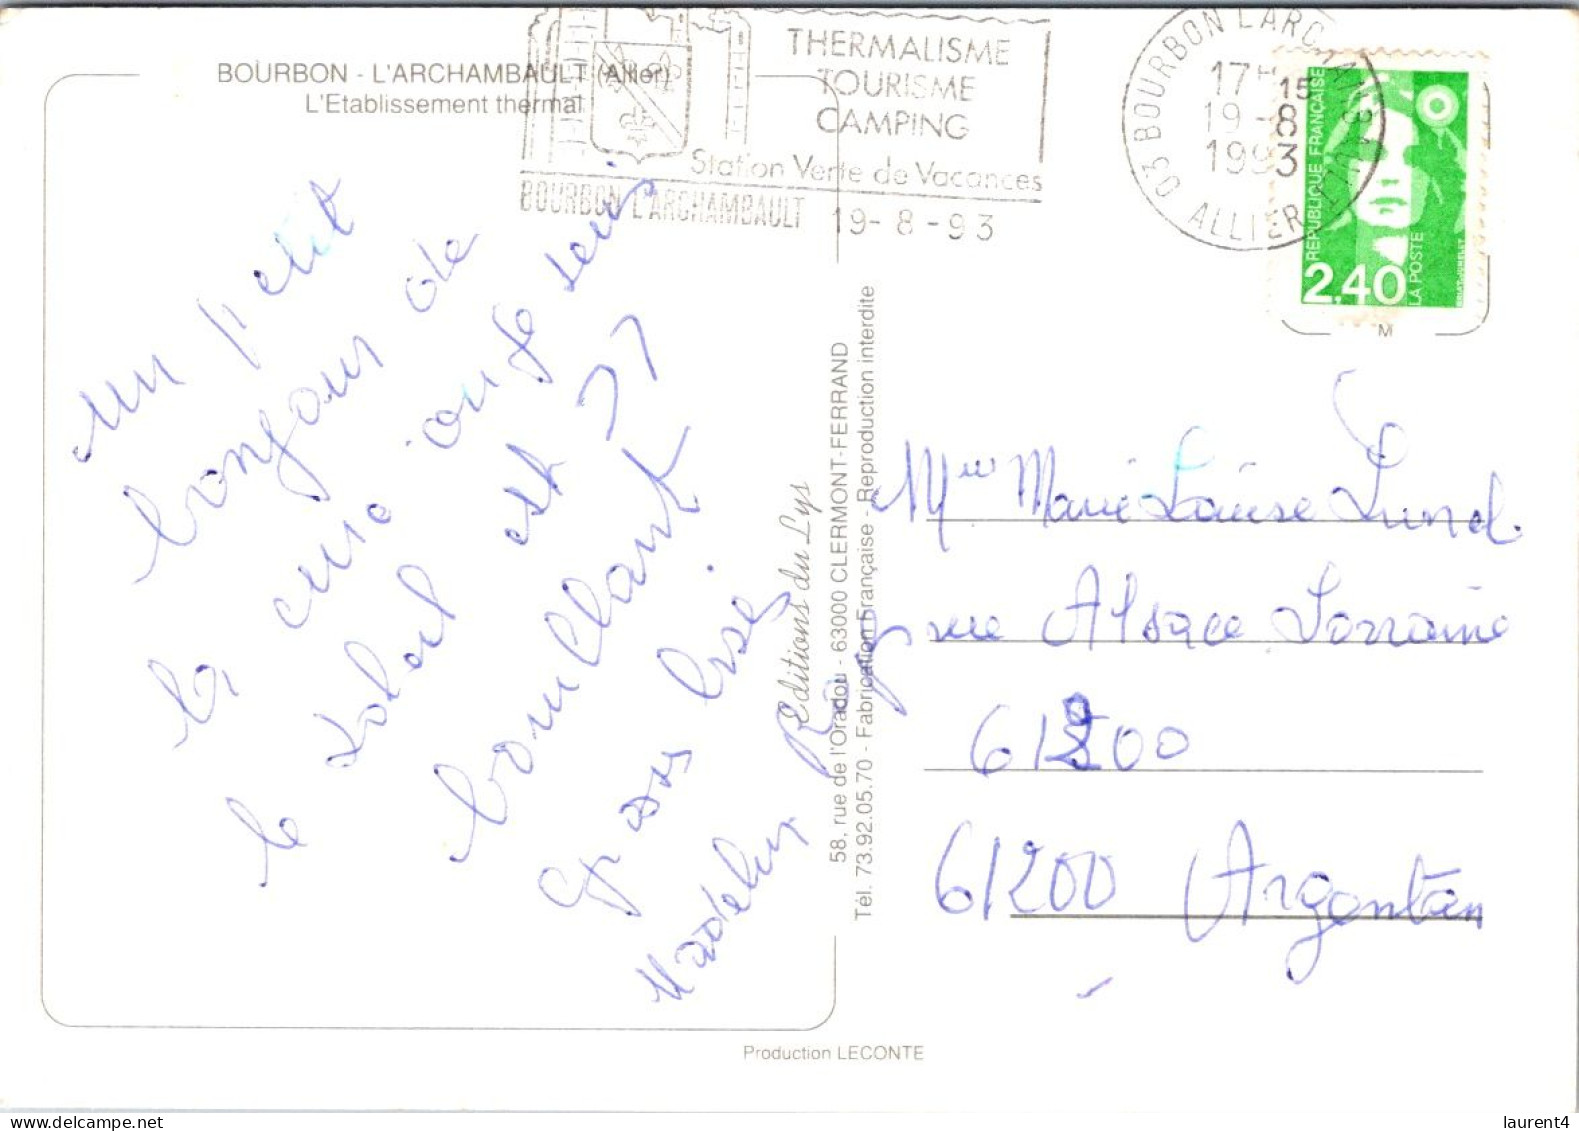 BOURBON - L'ARCHAMBAULT (Allier)
L'Etablissement thermal
THERMALISME
TOURISME
CAMPING
Station Verte de Vacances
BOURBON L'ARCHAMBAULT
19-8-93
03 BOURBON L'ARCHAMBAULT
17H15
19-8
1993
ALLIER
RÉPUBLIQUE FRANÇAISE
2,40
LA POSTE
M
un petit
bonjour de
la cure
le soleil est
bouillant
gros bises
Madeleine
Editions du Lys
58, rue de l'Oradou - 63000 CLERMONT-FERRAND
Tél. 73.92.05.70 - Fabrication Française - Reproduction interdite
Marie Louise Lunel
rue Alsace Lorraine
61200
61200 Argentan
Production LECONTE
laurent4